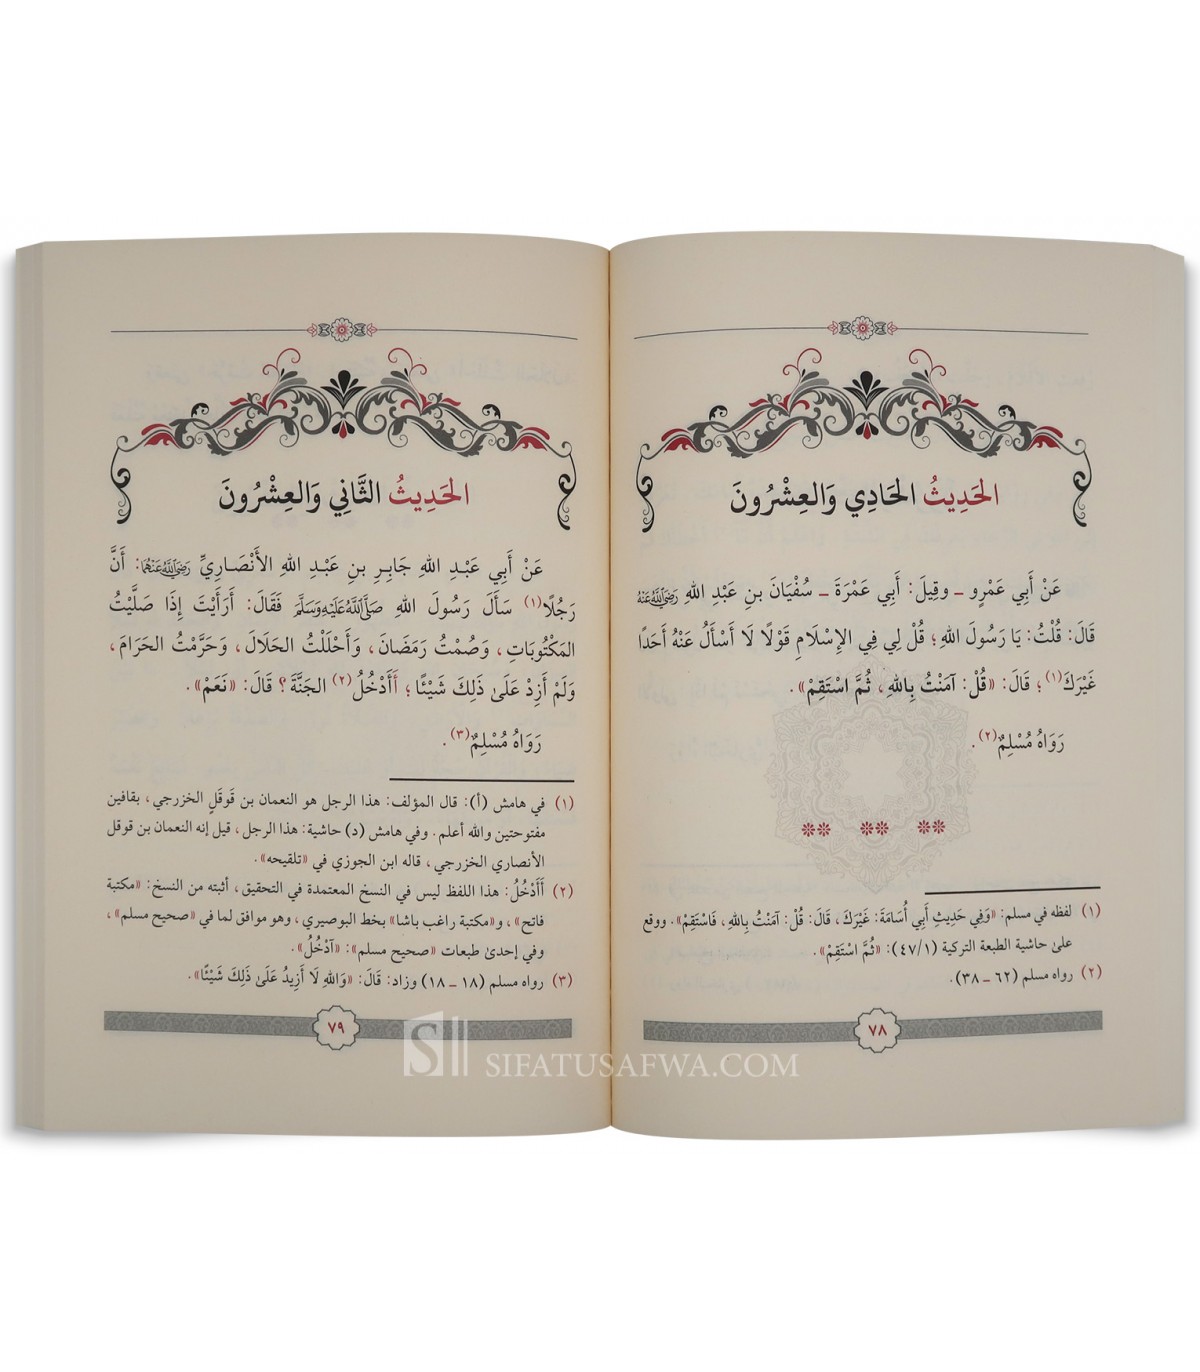 الحَدِيثُ الحَادِي وَالعِشْرُونَ
عَنْ أَبِي عَمْرٍو ـ وقِيلَ: أَبِي عَمْرَةَ ـ سُفْيَانَ بنِ عَبْدِ اللهِ رَضِيَ اللَّهُ عَنْهُ
قَالَ: قُلْتُ: يَا رَسُولَ اللهِ؛ قُلْ لِي فِي الإِسْلَامِ قَوْلًا لَا أَسْأَلُ عَنْهُ أَحَدًا
غَيْرَكَ(١)؛ قَالَ: «قُلْ: آمَنْتُ بِاللهِ، ثُمَّ اسْتَقِمْ».
رَوَاهُ مُسْلِمٌ(٢).
(١) لفظه في مسلم: «وَفِي حَدِيثِ أَبِي أُسَامَةَ: غَيْرَكَ، قَالَ: قُلْ: آمَنْتُ بِاللهِ، فَاسْتَقِمْ». ووقع
على حاشية الطبعة التركية (٤٧/١): «ثُمَّ اسْتَقِمْ».
(٢) رواه مسلم (٦٢ ـ ٣٨).
٧٨
الحَدِيثُ الثَّانِي وَالعِشْرُونَ
عَنْ أَبِي عَبْدِ اللهِ جَابِرِ بنِ عَبْدِ اللهِ الأَنْصَارِيِّ رَضِيَ اللَّهُ عَنْهُمَا: أَنَّ
رَجُلًا(١) سَأَلَ رَسُولَ اللهِ صَلَّى اللَّهُ عَلَيْهِ وَسَلَّمَ فَقَالَ: أَرَأَيْتَ إِذَا صَلَّيْتُ
المَكْتُوبَاتِ، وَصُمْتُ رَمَضَانَ، وَأَحْلَلْتُ الحَلَالَ، وَحَرَّمْتُ الحَرَامَ،
وَلَمْ أَزِدْ عَلَىٰ ذَلِكَ شَيْئًا؛ أَأَدْخُلُ(٢) الجَنَّةَ؟ قَالَ: «نَعَمْ».
رَوَاهُ مُسْلِمٌ(٣).
(١) في هامش (أ): قال المؤلف: هذا الرجل هو النعمان بن قَوقَلٍ الخزرجي، بقافين
مفتوحتين والله أعلم. وفي هامش (د) حاشية: هذا الرجل، قيل إنه النعمان بن قوقل
الأنصاري الخزرجي، قاله ابن الجوزي في «تلقيحه».
(٢) أَأَدْخُلُ: هذا اللفظ ليس في النسخ المعتمدة في التحقيق، أثبته من النسخ: «مكتبة
فاتح»، و«مكتبة راغب باشا» بخط البوصيري، وهو موافق لما في «صحيح مسلم»،
وفي إحدى طبعات «صحيح مسلم»: «آدْخُلُ».
(٣) رواه مسلم (١٨ ـ ١٨) وزاد: قَالَ: «وَاللهِ لَا أَزِيدُ عَلَىٰ ذَلِكَ شَيْئًا».
٧٩
SIFATUSAFWA.COM